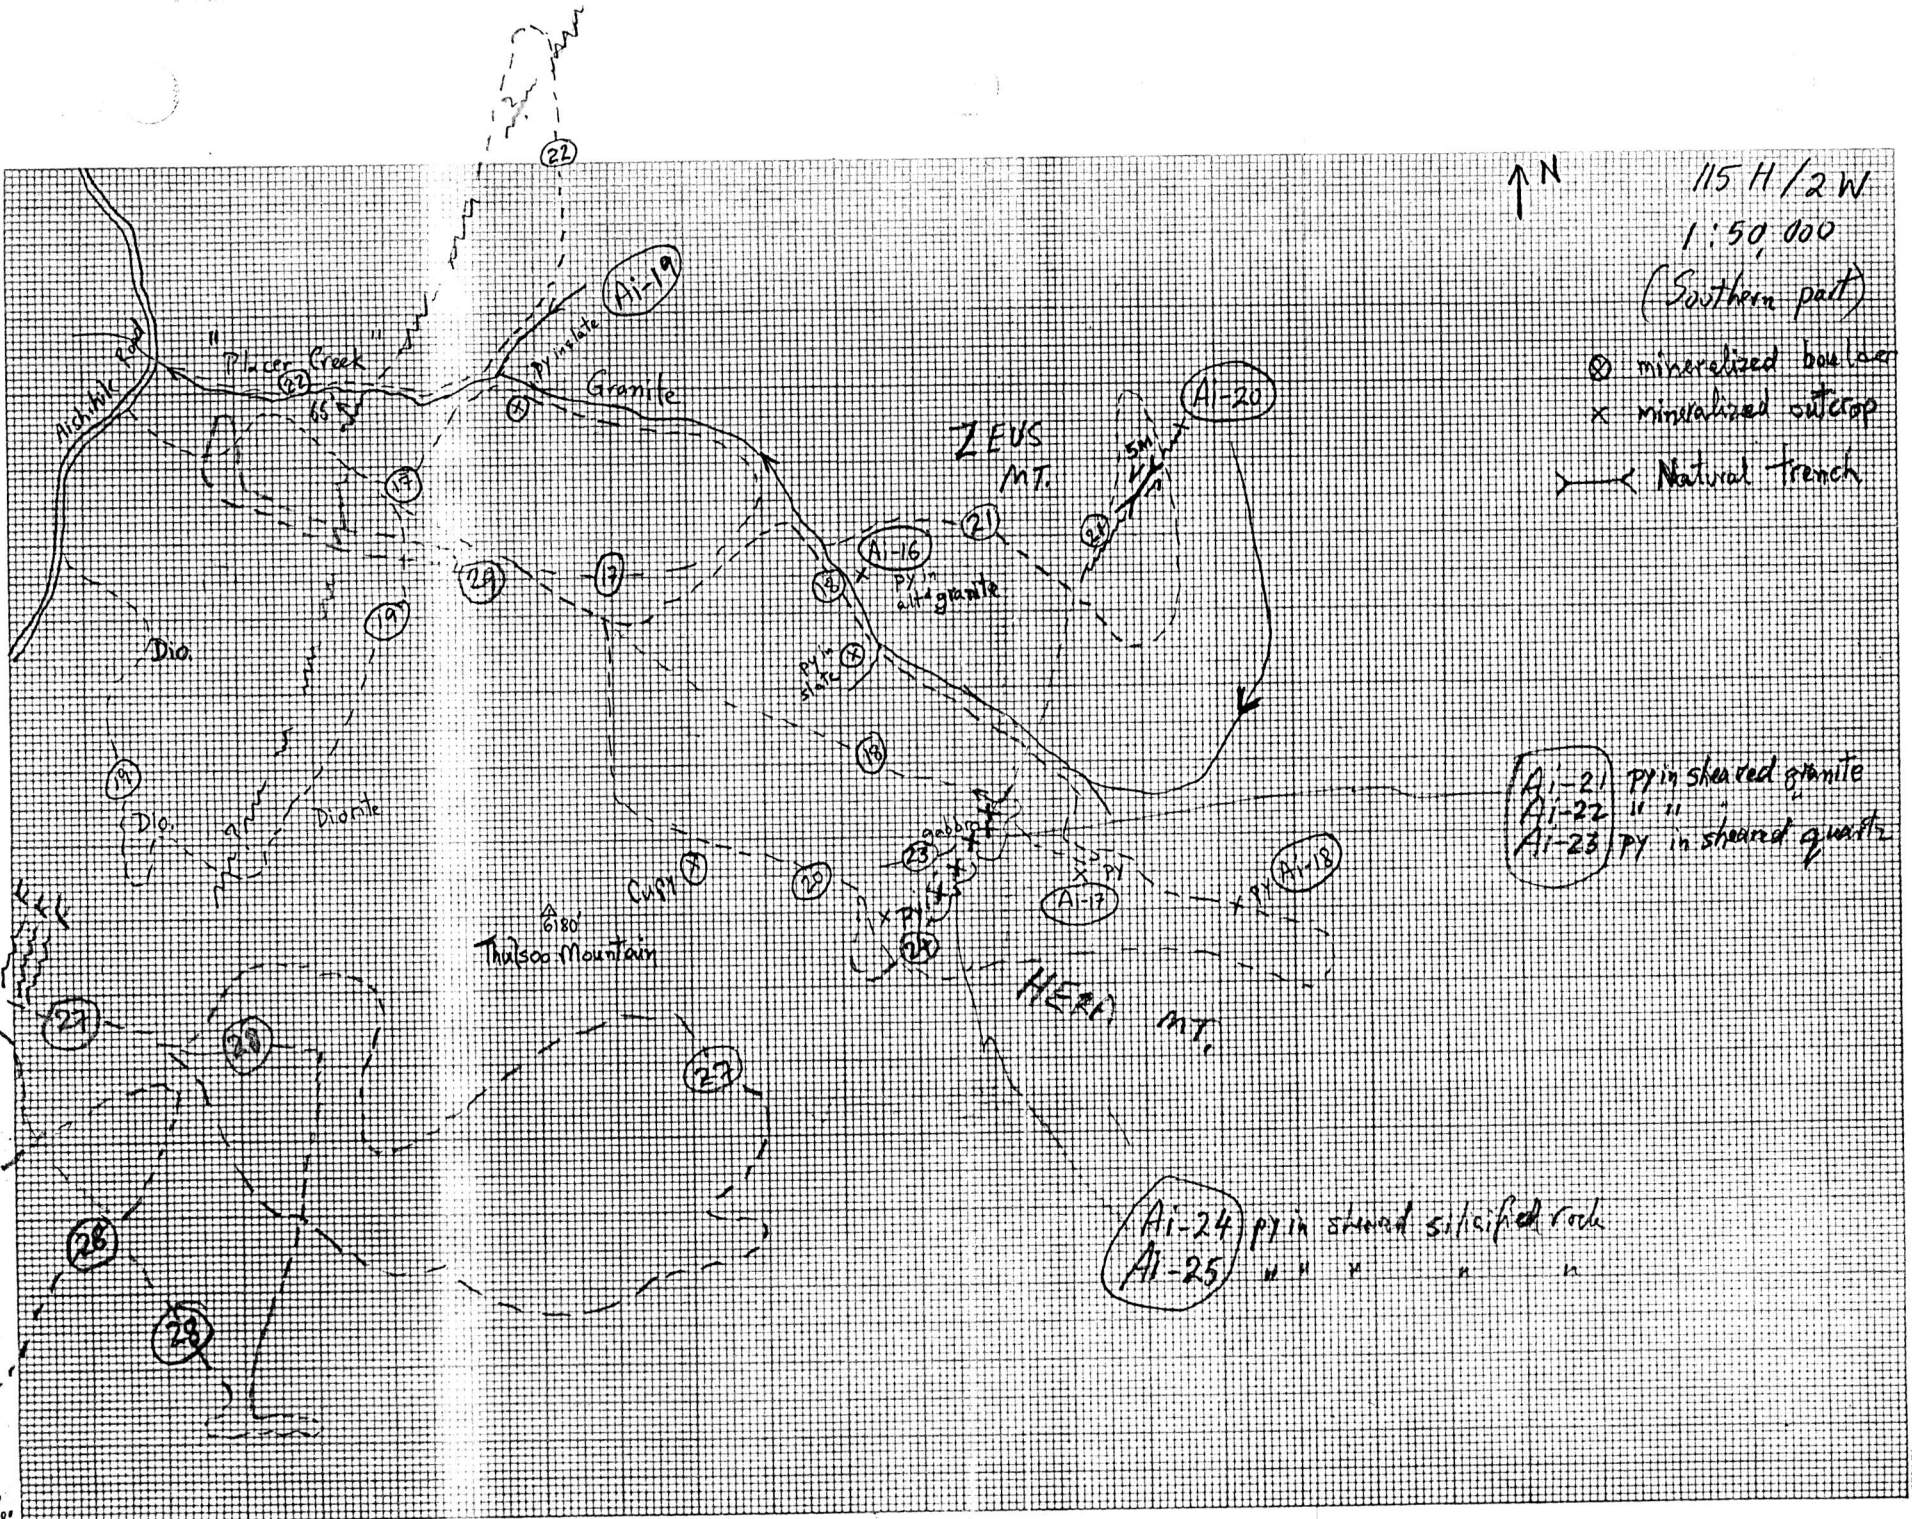 22
N
115 H/2W
1:50,000
(Southern part)
⊗ mineralized boulder
x mineralized outcrop
Natural trench
Ai-19
py in slate
"Placer Creek"
22
65
Aishihik Road
Granite
Ai-20
ZEUS
MT.
5m
17
21
21
Ai-16
py in
alt'd granite
29
17
18
19
Dio.
py in
slate
18
19
Dio.
Diorite
Ai-21 py in sheared granite
Ai-22 " " "
Ai-23 py in sheared quartz
gabbro
23
Cupy
20
py
Ai-17
py Ai-18
py
24
6180'
Thulsoo Mountain
HERA MT.
27
28
27
28
28
Ai-24 py in sheared silicified rock
Ai-25 " " " " "